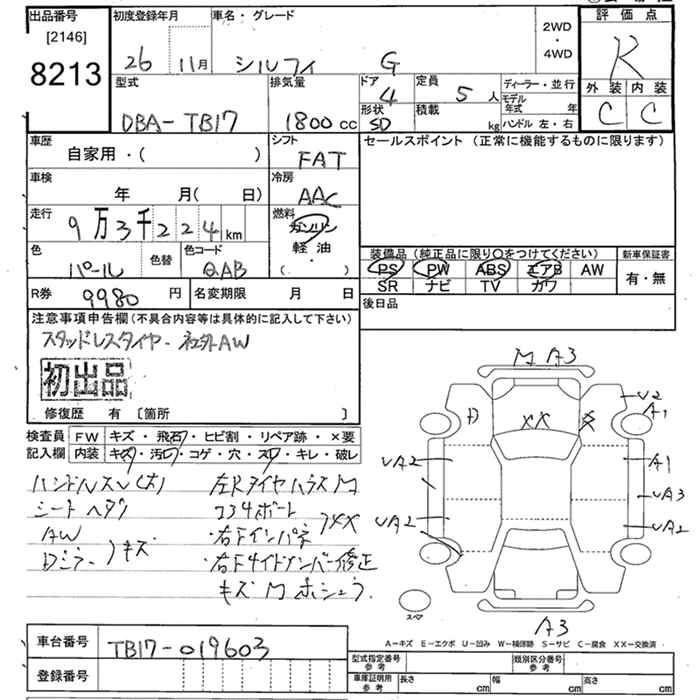 出品番号
[2146]
8213
初度登録年月
26 11月
車名・グレード
シルフィ G
2WD
・
4WD
評価点
R
外装 内装
C C
型式
DBA-TB17
排気量
1800 cc
ドア
4
形状
SD
定員
5 人
積載
kg
ディーラー・並行
モデル年式 年
ハンドル 左・右
車歴
自家用・( )
シフト
FAT
車検
年 月( 日)
冷房
AAC
走行
9万3千224km
燃料
ガソリン
軽油
( ・ )
色
パール
色替
色コード
QAB
R券
9980 円
名変期限 月 日
セールスポイント(正常に機能するものに限ります)
装備品(純正品に限り〇をつけてください)
PS PW ABS エアB AW
SR ナビ TV ガワ
新車保証書
有・無
後日品
注意事項申告欄(不具合内容等は具体的に記入して下さい)
スタッドレスタイヤ・社外AW
初出品
修復歴 有 [箇所 ]
検査員
記入欄
FW キズ・飛石・ヒビ割・リペア跡・×要
内装 キズ・汚レ・コゲ・穴・スレ・キレ・破レ
シート
AW
キズ
左Rタイヤハウス M
コ34ボート
・右Fインパネ
XX
・右Fサイドメンバー修正
キズ M
M A3
U2
A1
XX
UA2
A1
UA3
UA2
UA2
スペア
A3
A-キズ E-エクボ U-凹み W-補修跡 S-サビ C-腐食 XX-交換済
車台番号
TB17-019603
登録番号
型式指定番号
参考
類別区分番号
参考
車庫証明所
参考
長さ cm 幅 cm 高さ cm